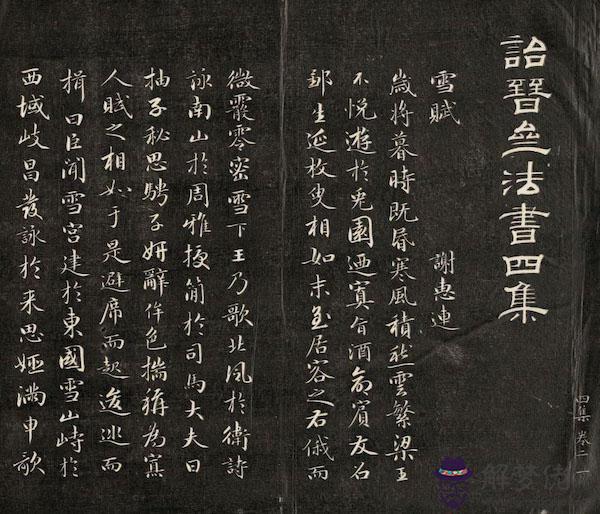 詒晉亝法書四集
雪賦 謝惠連
歲將暮時既昏寒風積愁雲繁梁王
不悅遊於兔園迺寘旨酒命賓友召
鄒生延枚叟相如末至居客之右俄而
微霰零密雪下王乃歌北風於衛詩
詠南山於周雅授簡於司馬大夫曰
抽子秘思騁子妍辭侔色揣稱為寡
人賦之相如于是避席而起逡巡而
揖曰臣聞雪宮建於東國雪山峙於
西域岐昌發詠於來思姬滿申歌
四集 卷二 一